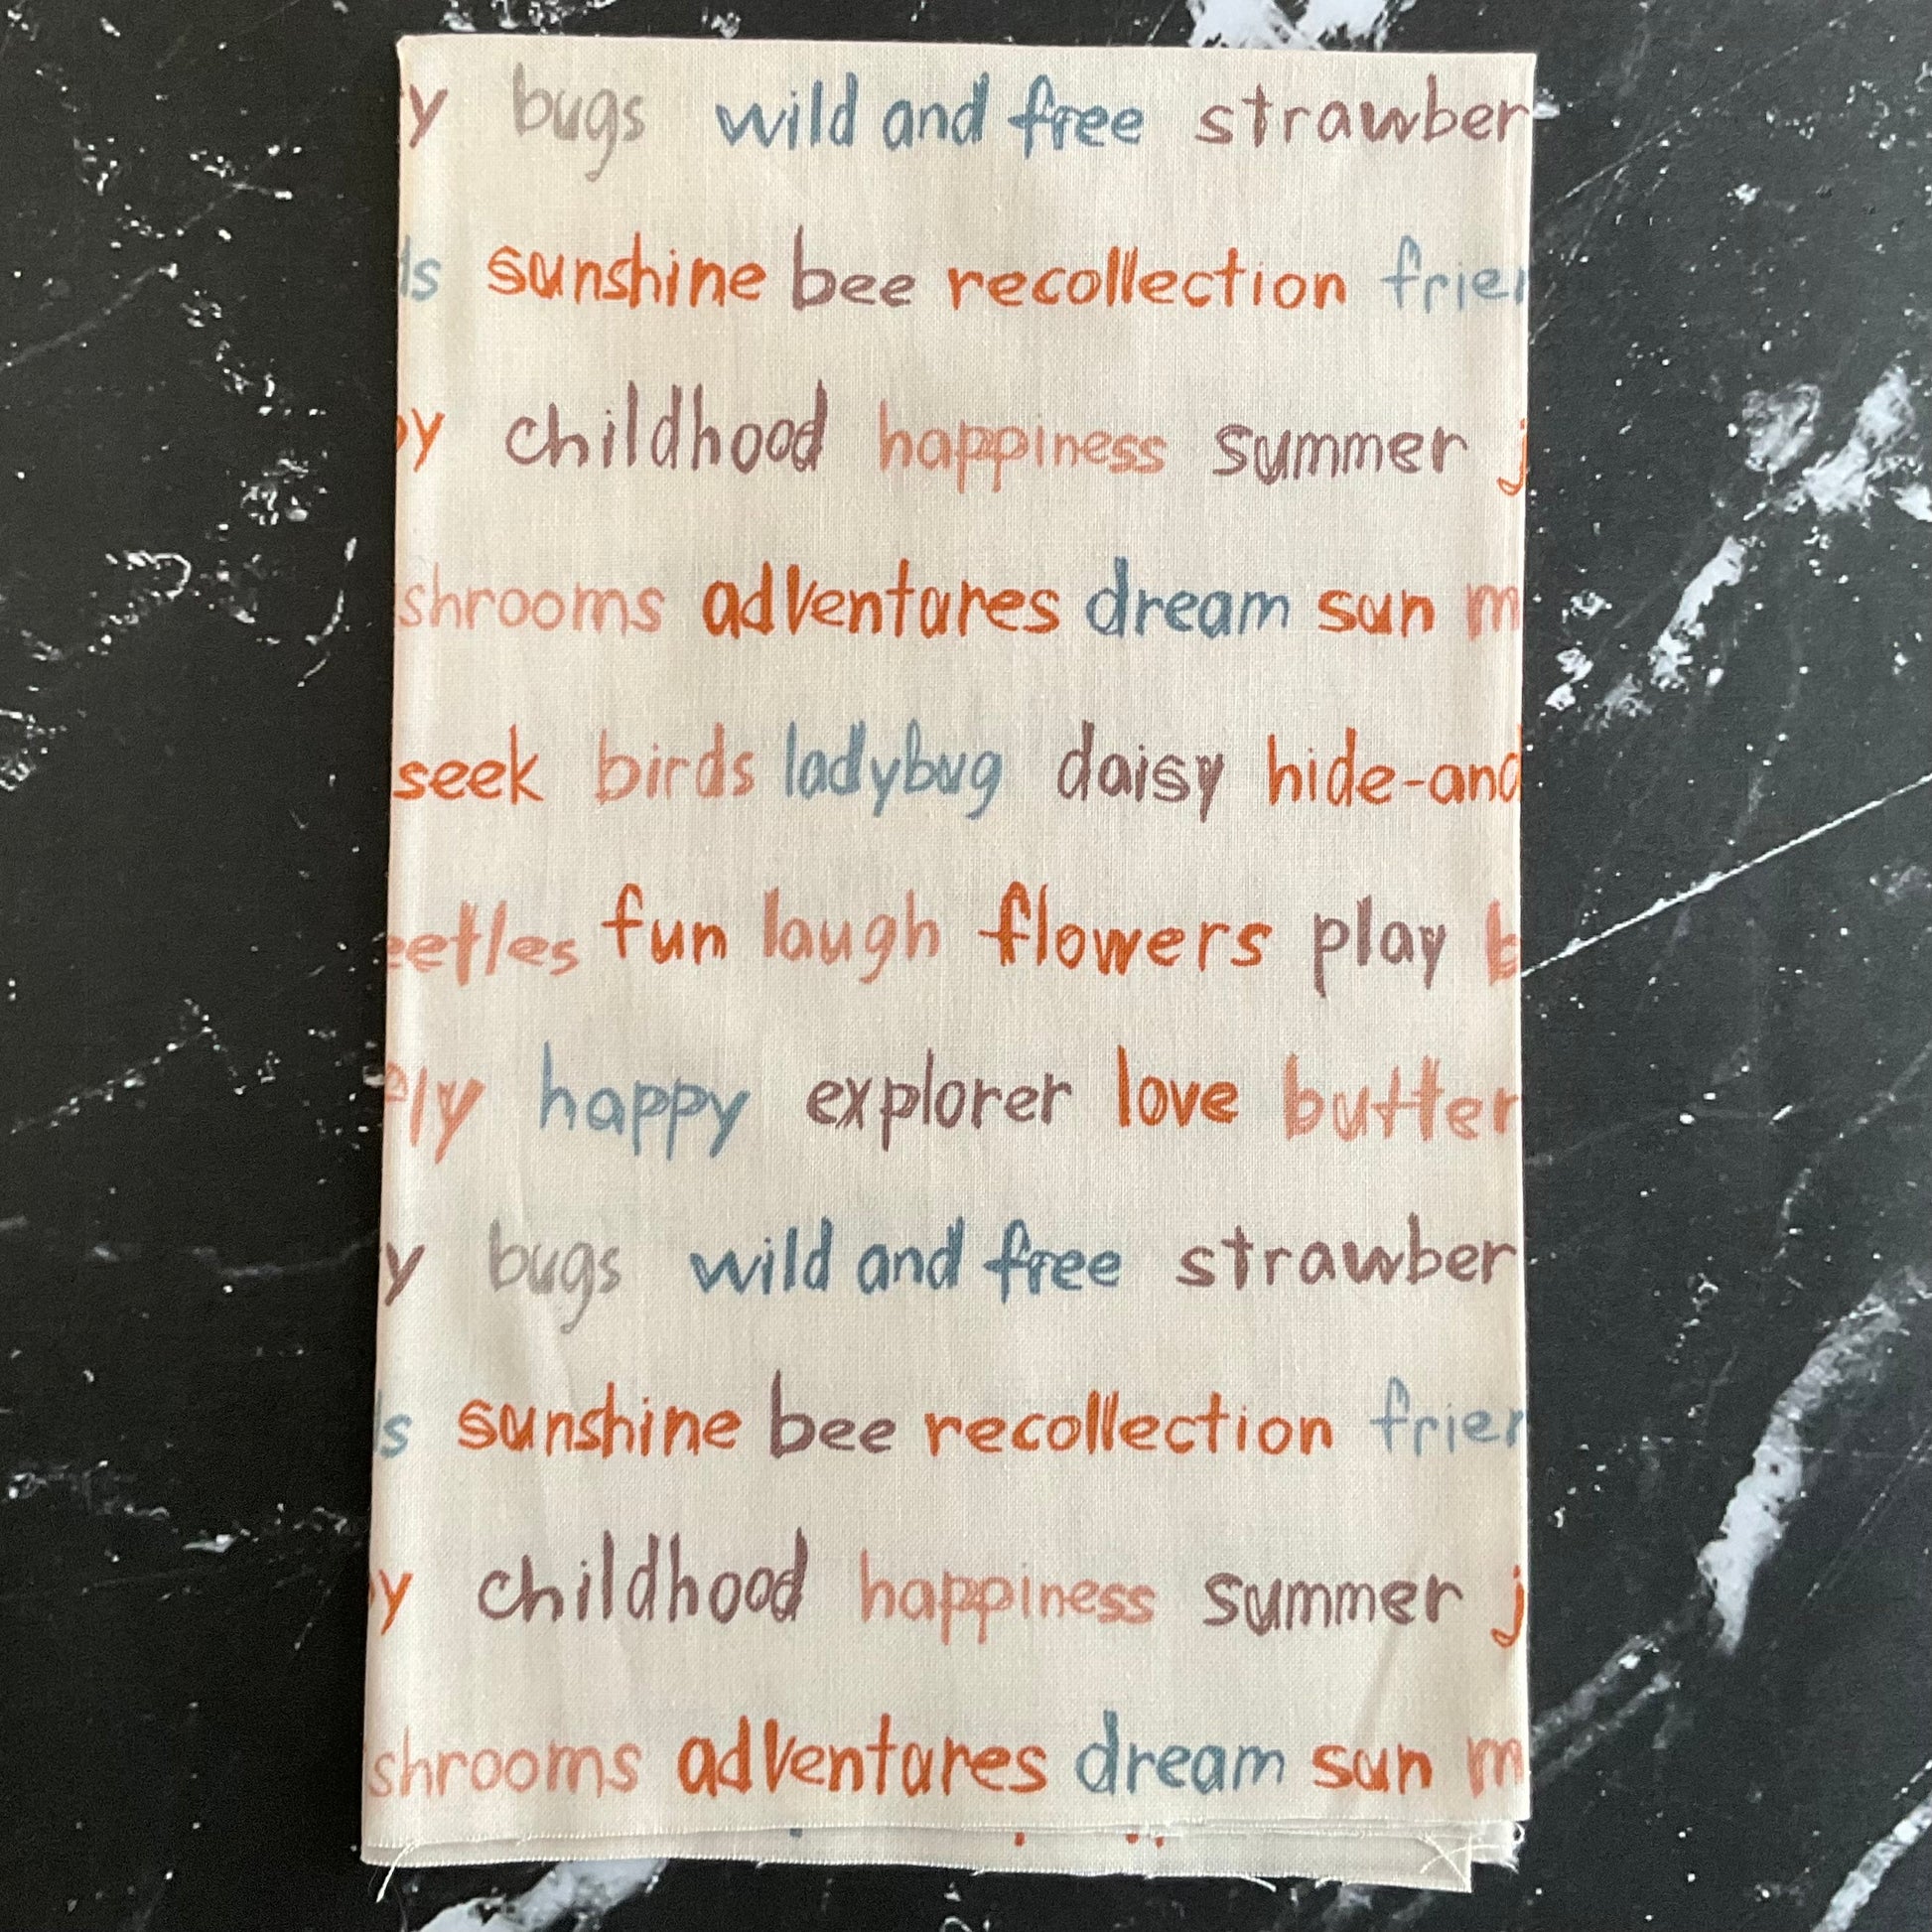 y bugs wild and free strawber
ls sunshine bee recollection frien
oy childhood happiness summer j
shrooms adventures dream sun m
seek birds ladybug daisy hide-and
eetles fun laugh flowers play b
ply happy explorer love butter
y bugs wild and free strawber
ls sunshine bee recollection frien
oy childhood happiness summer j
shrooms adventures dream sun m